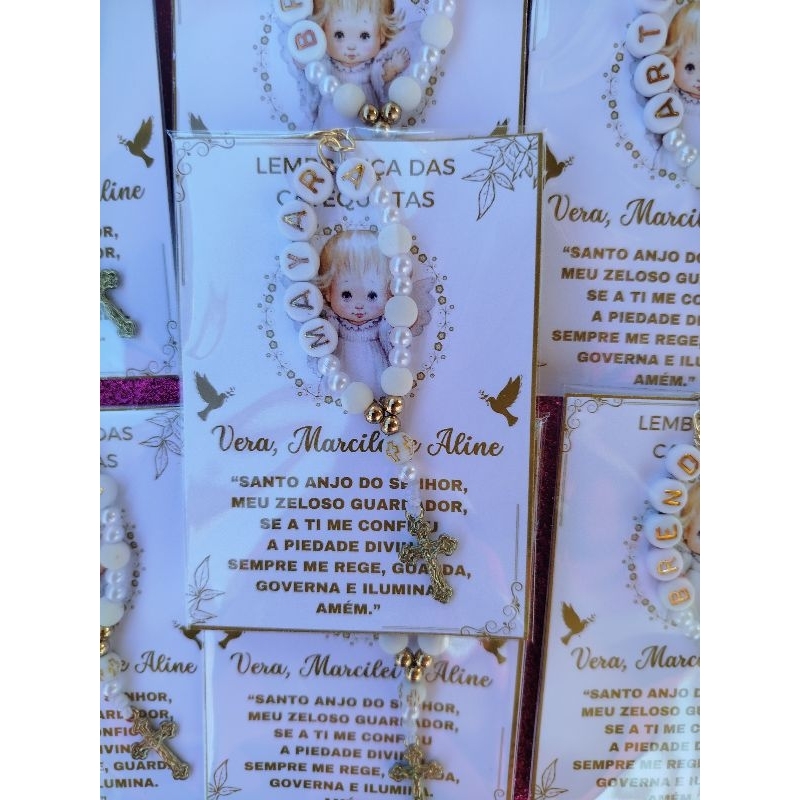 BR
ART
LEMBRANÇA DAS
CATEQUISTAS
MAYARA
Vera, Marcilei e Aline
“SANTO ANJO DO SENHOR,
MEU ZELOSO GUARDADOR,
SE A TI ME CONFIOU
A PIEDADE DIVINA,
SEMPRE ME REGE, GUARDA,
GOVERNA E ILUMINA.
AMÉM.”
line
OR,
Vera, Marcil
“SANTO ANJO DO
MEU ZELOSO GU
SE A TI ME CO
A PIEDADE DI
SEMPRE ME REGE,
GOVERNA E ILU
AMÉM.”
DAS
AS
e Aline
NHOR,
DOR,
UMINA.
Vera, Marcilei Aline
“SANTO ANJO DO SENHOR,
MEU ZELOSO GUARDADOR,
SE A TI ME CONFIOU
A PIEDADE DIVINA,
SEMPRE ME REGE, GUARDA,
GOVERNA E ILUMINA.
LEMB
C
BREND
Vera, Marci
“SANTO ANJO D
MEU ZELOSO G
SE A TI ME C
A PIEDADE
SEMPRE ME REG
GOVERNA E I